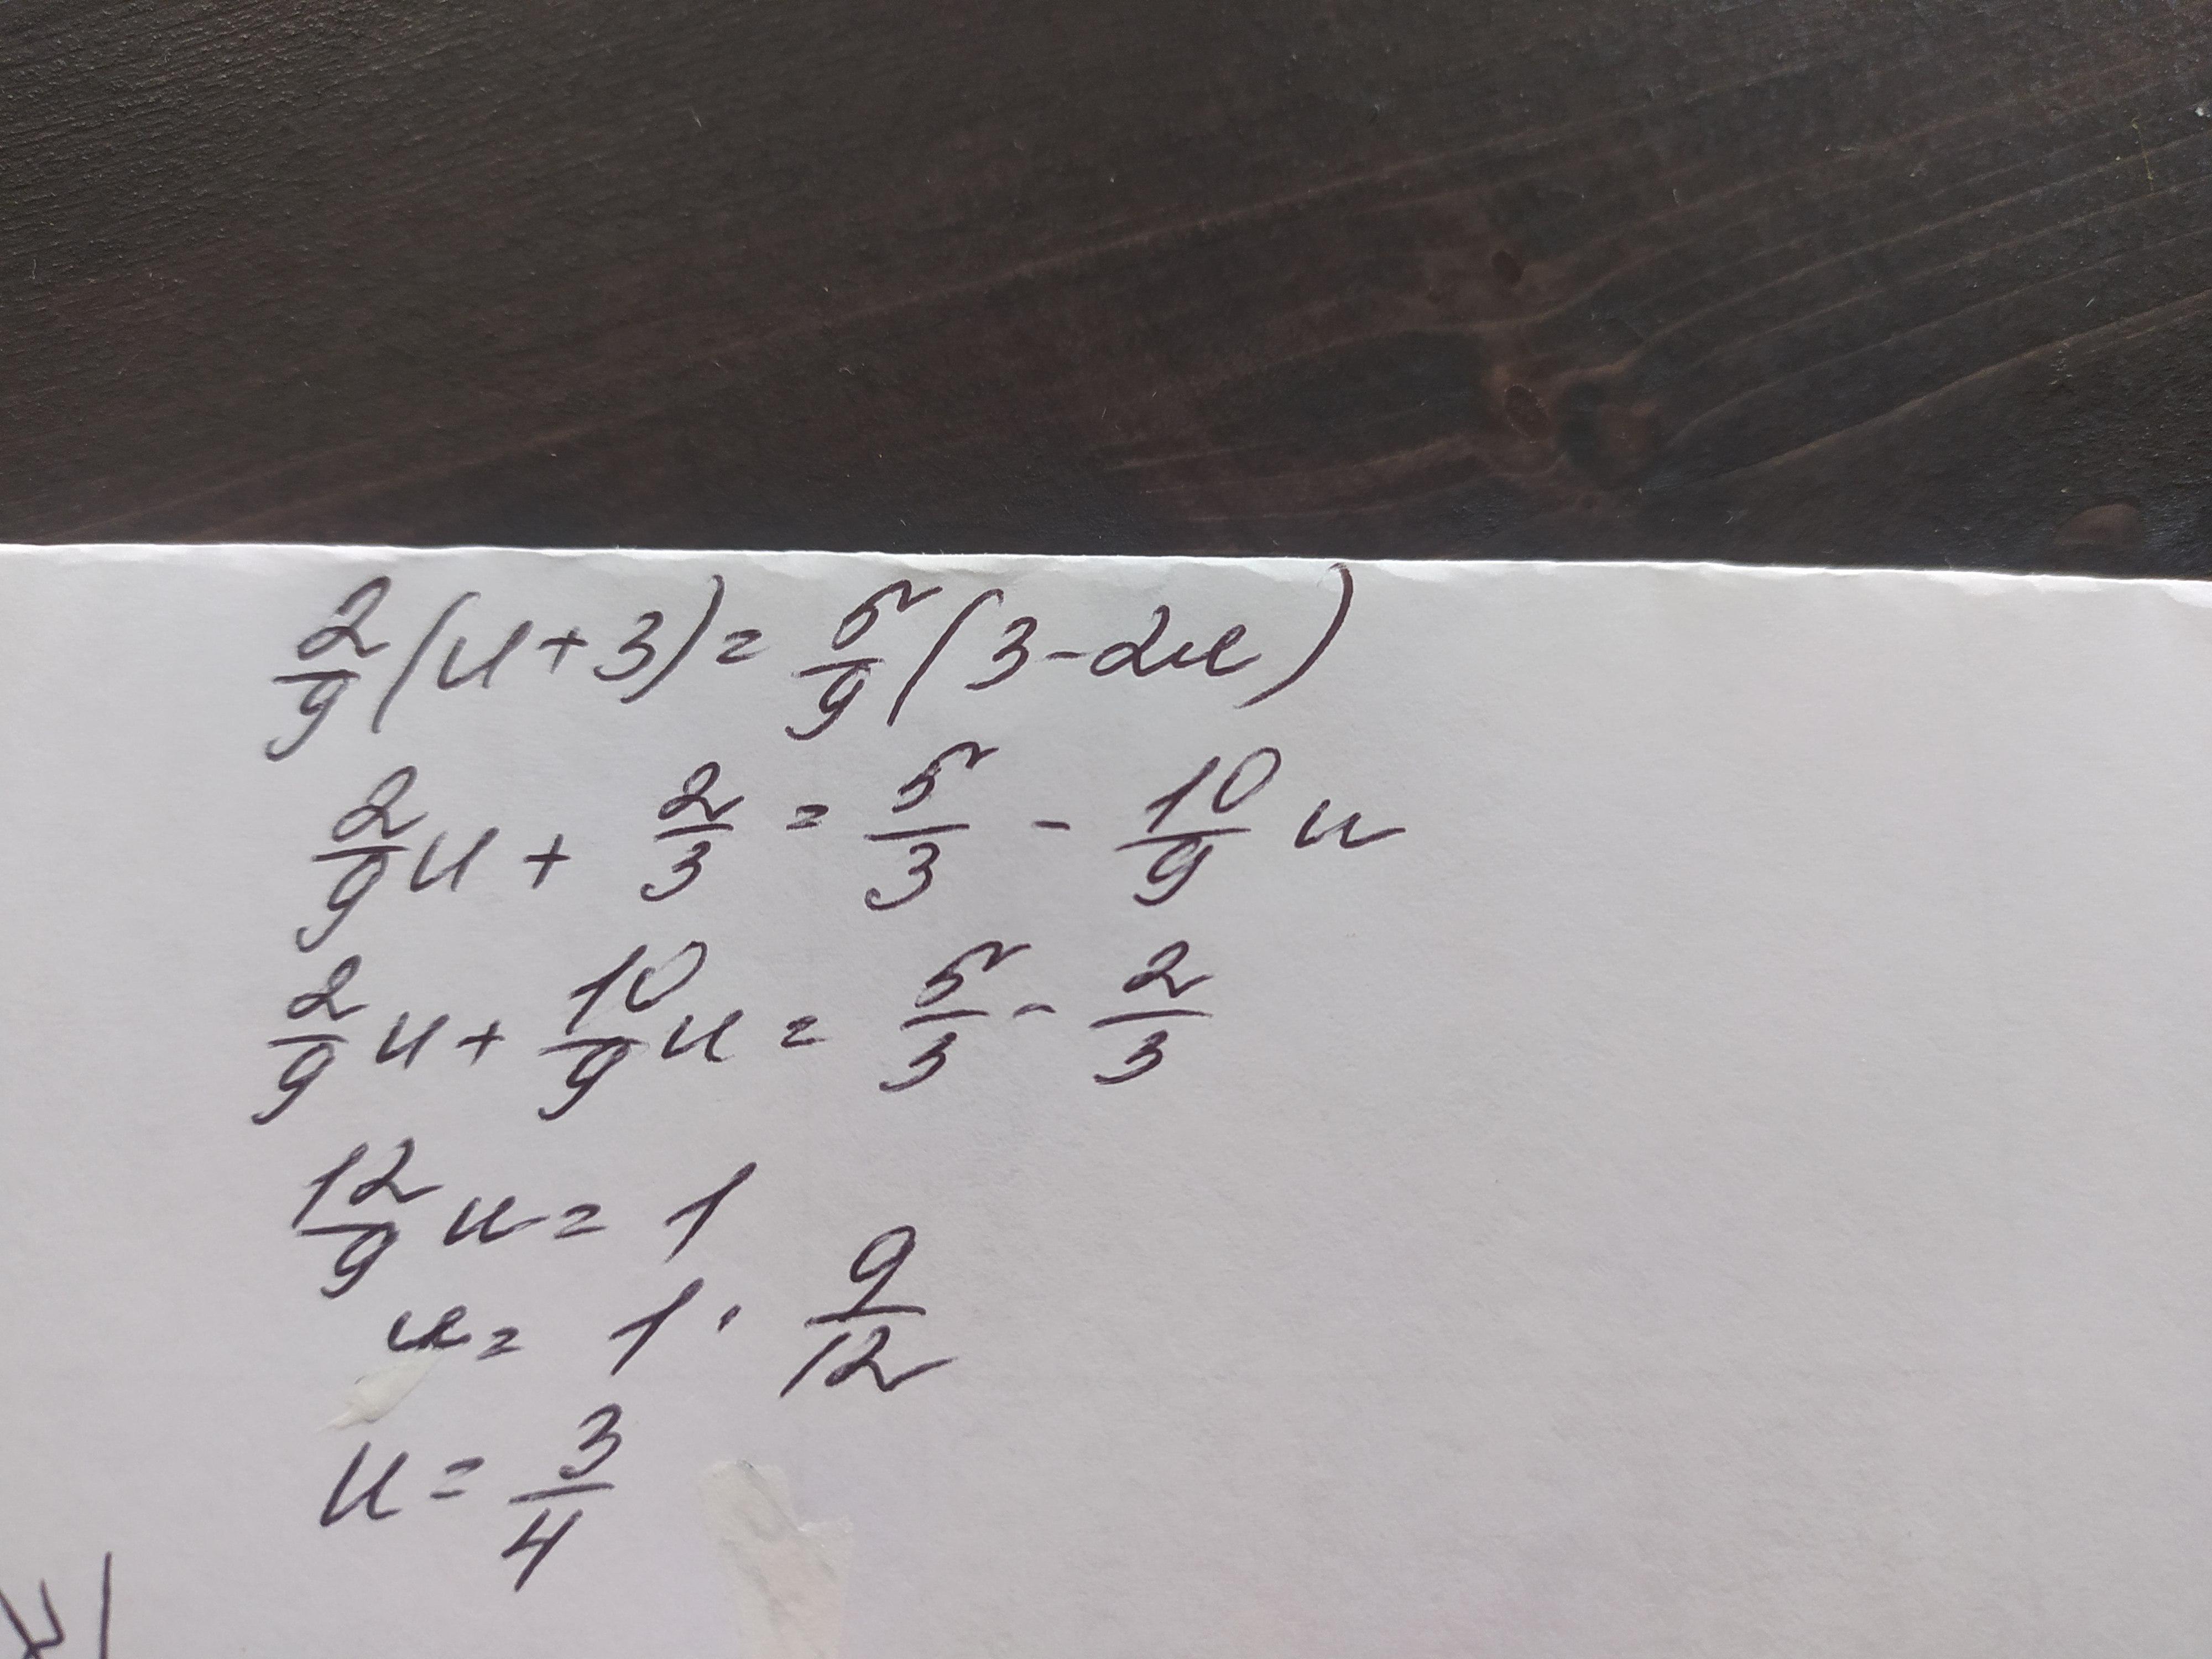 2/9(u+3)=5/9(3-2u)
2/9u+2/3=5/3-10/9u
2/9u+10/9u=5/3-2/3
12/9u=1
u=1·9/12
u=3/4